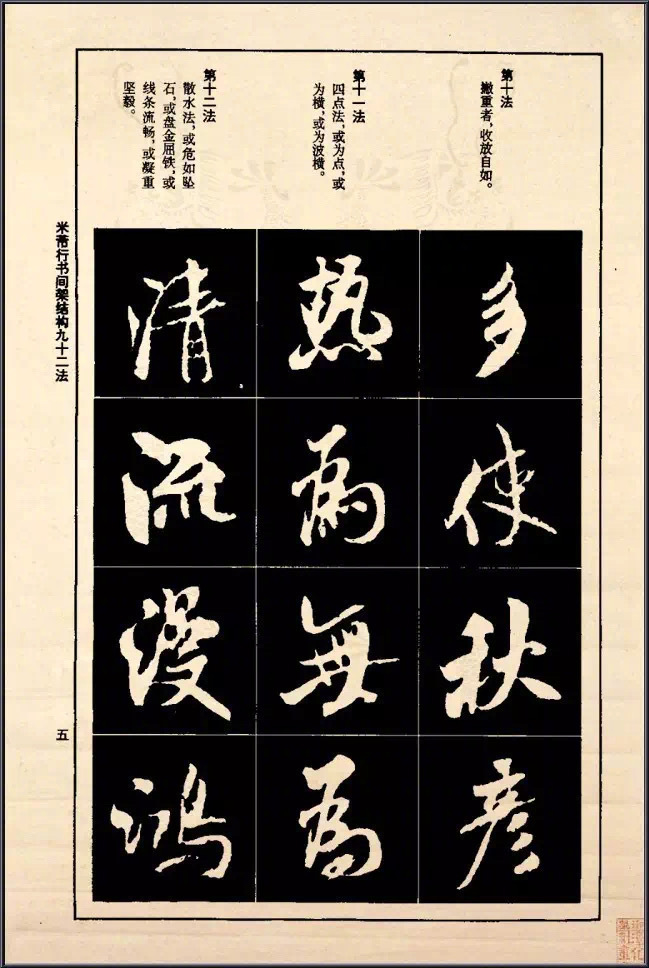 第十法
撇重者,收放自如。
第十一法
四点法,或为点,或
为横,或为波横。
第十二法
散水法,或危如坠
石,或盘金屈铁,或
线条流畅,或凝重
坚毅。
多
使
秋
彦
热
為
無
為
清
流
漫
鸿
米芾行书间架结构九十二法
五